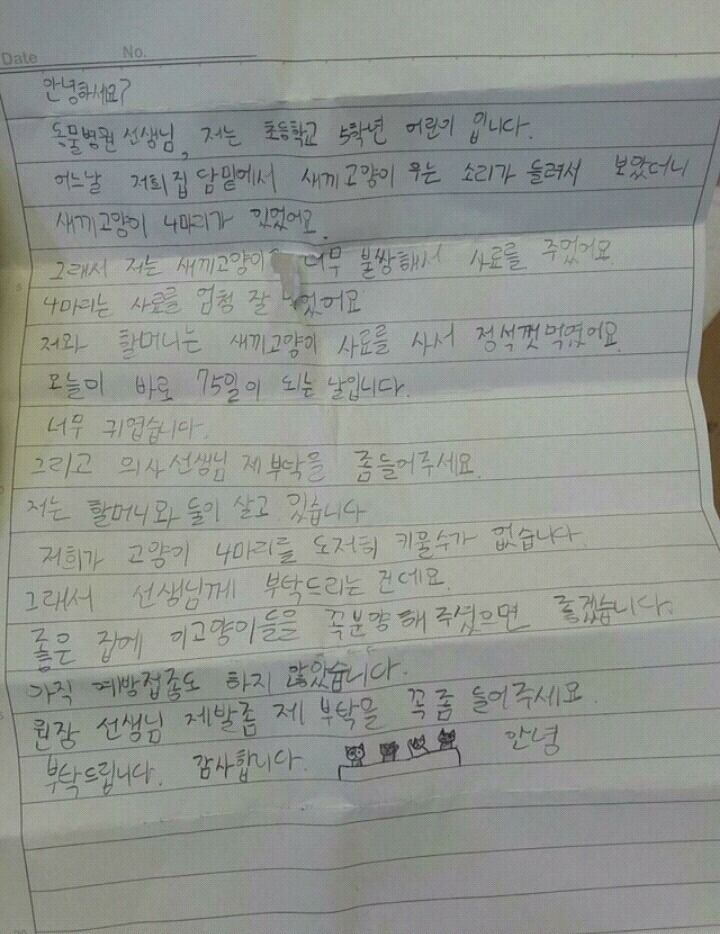 Date No.
안녕하세요?
동물병원 선생님, 저는 초등학교 5학년 어린이 입니다.
어느날 저희 집 담밑에서 새끼고양이 우는 소리가 들려서 보았더니
새끼고양이 4마리가 있었어요.
그래서 저는 새끼고양이 너무 불쌍해서 사료를 주었어요.
4마리는 사료를 엄청 잘 었어요
저와 할머니는 새끼고양이 사료를 사서 정석껏먹였어요.
오늘이 바로 75일이 되는 날입니다.
너무 귀엽습니다.
그리고 의사선생님 제부탁을 좀들어주세요.
저는 할머니와 둘이 살고 있습니다
저희가 고양이 4마리를 도저희 키울수가 없습니다.
그래서 선생님께 부탁드리는 건데요.
좋은 집에 이고양이들을 꼭분양해주셨으면 좋겠습니다.
아직 예방접종도 하지 않았습니다.
원장 선생님 제발좀 제 부탁을 꼭좀 들어주세요.
부탁드립니다. 감사합니다. 안녕